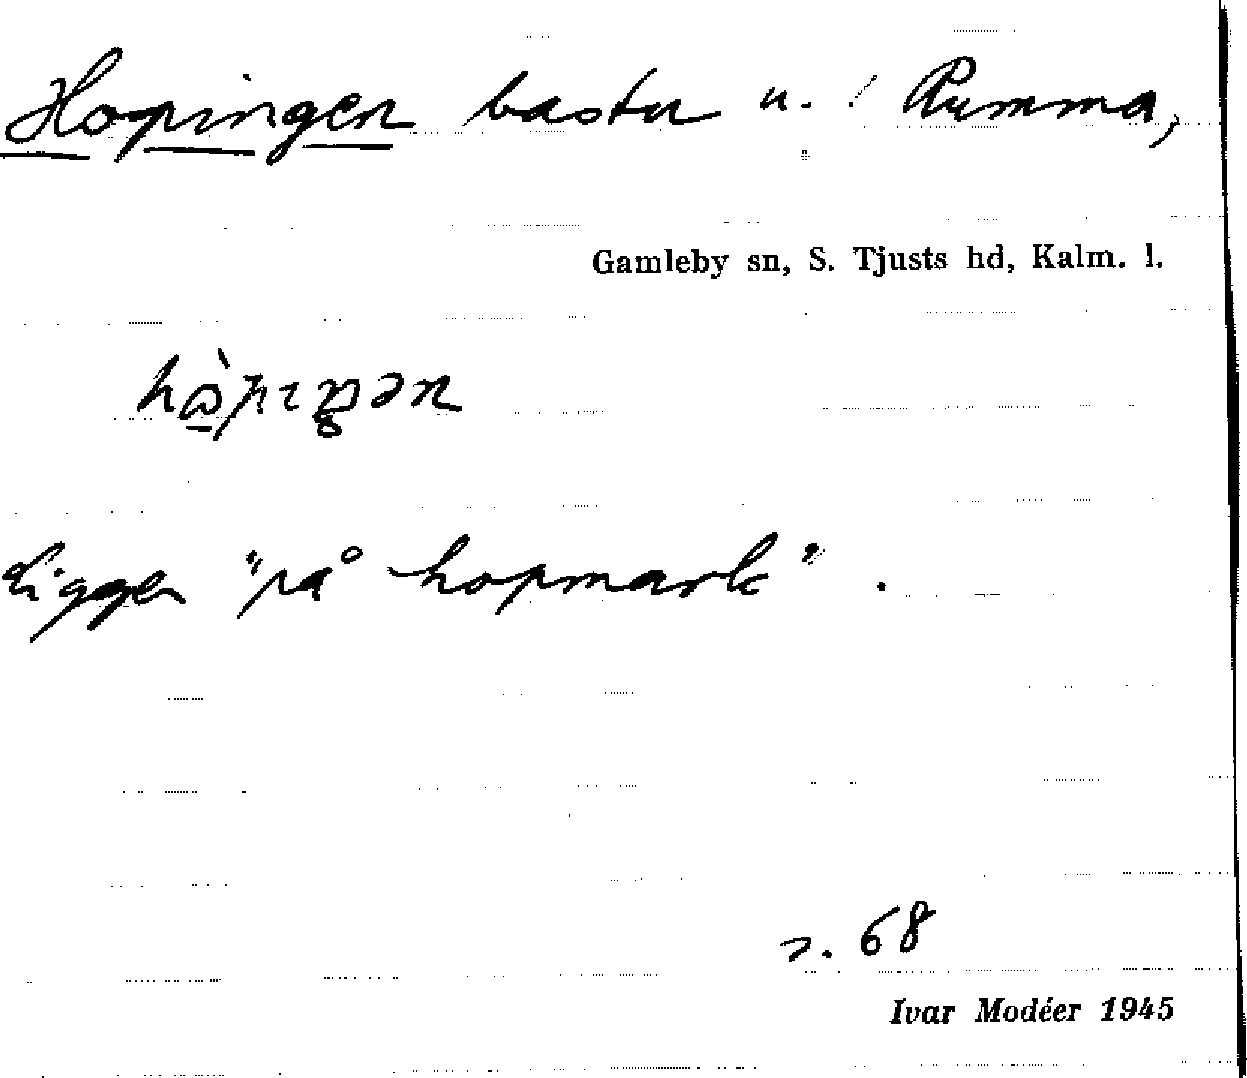 Hopingen bastu u. Rumma,
Gamleby sn, S. Tjusts hd, Kalm. l.
Ligger "på hopmark".
s. 68
Ivar Modéer 1945